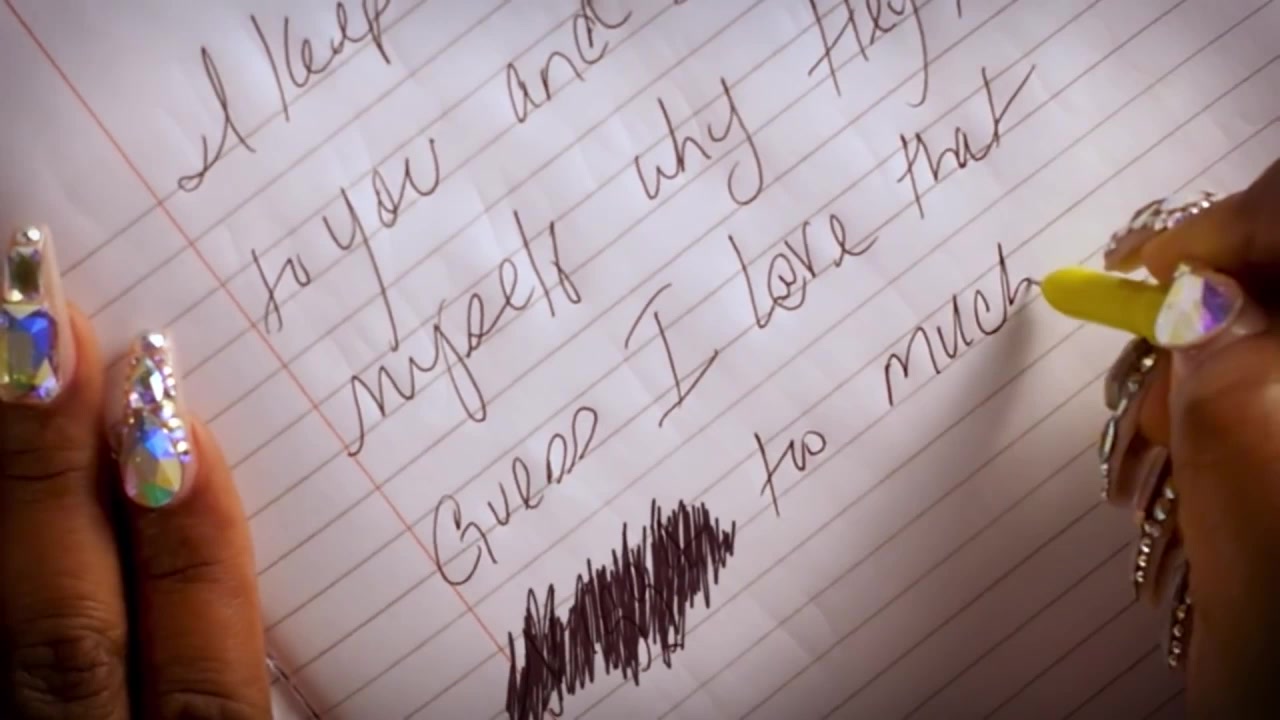 I keep
to you and
myself why they
Guess I love that
to much